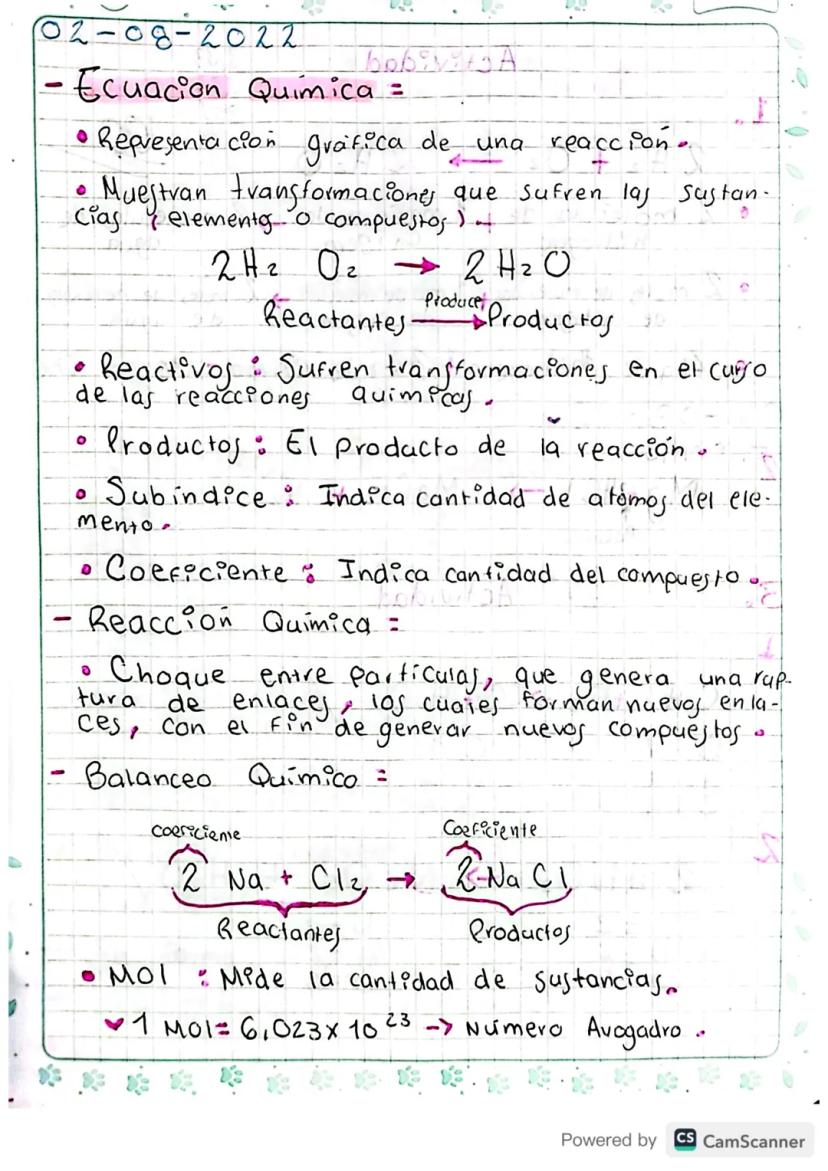 02-08-2022
- Ecuacion Química =
• Representación gráfica de una reacción.
• Muestran transformaciones que sufren las sustan-
cias (elemento o compuestos).
2H2 O2 → 2H2O
Produce
Reactantes → Productos
• Reactivos : Sufren transformaciones en el curso
de las reacciones químicas.
• Productos : El producto de la reacción.
• Subíndice : Indica cantidad de atómos del ele-
mento.
• Coeficiente : Indica cantidad del compuesto.
- Reacción Química =
• Choque entre partículas, que genera una rup-
tura de enlaces, los cuales forman nuevos enla-
ces, con el fin de generar nuevos compuestos.
- Balanceo Químico =
coeficiente Coeficiente
2 Na + Cl2 → 2 Na Cl
Reactantes Productos
• Mol : Mide la cantidad de sustancias.
1 Mol= 6,023x10 23 -> Número Avogadro.
Powered by CS CamScanner